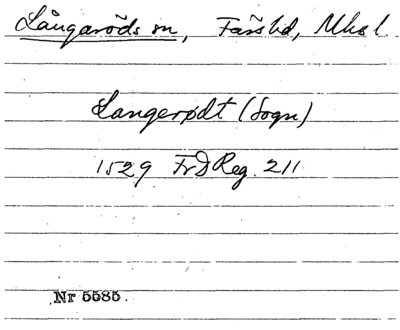 Långaröds sn, Färs hd, Mhs l.
Langerødt (Sogn)
1529 FrDReg. 211
Nr 5585.